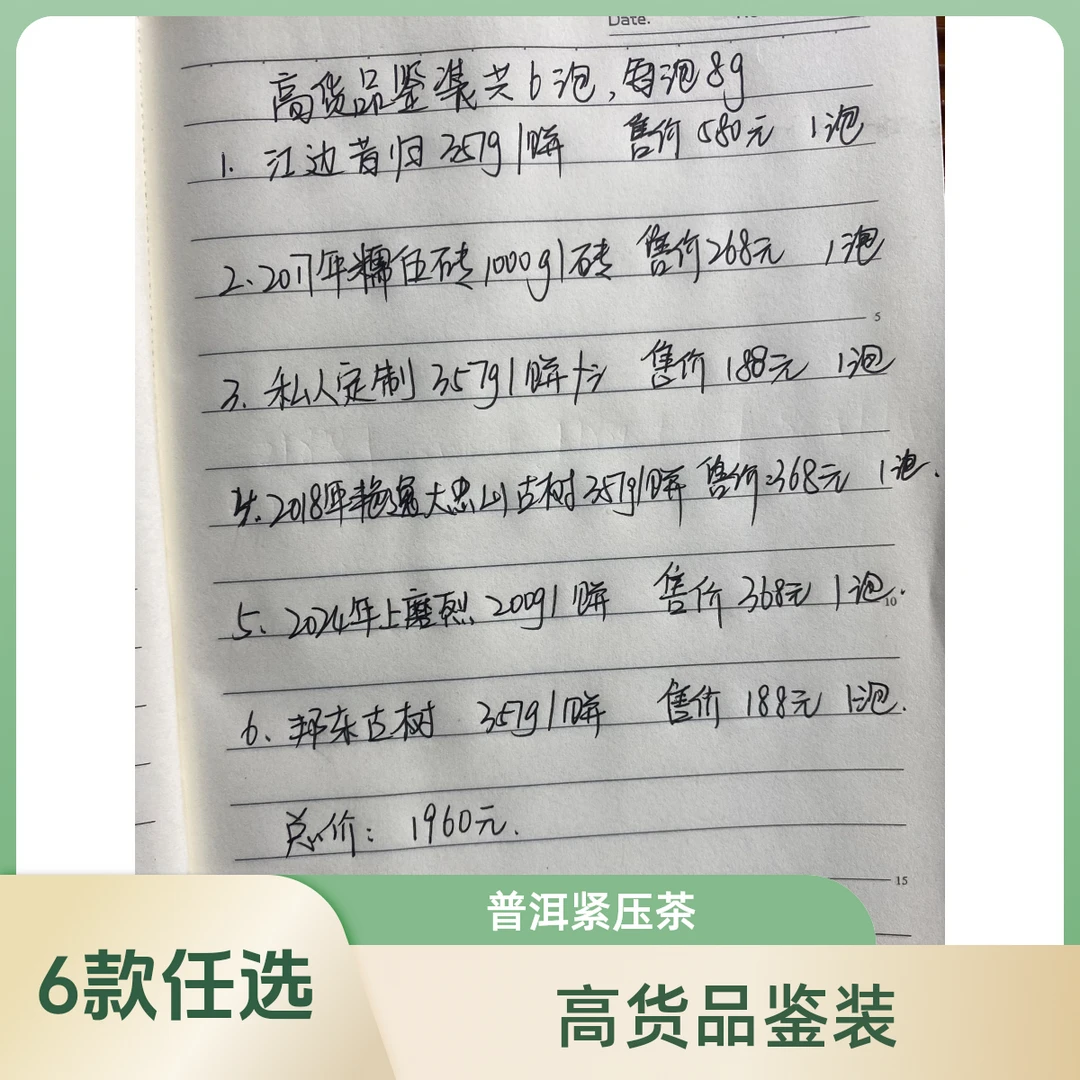 Date.
高货品鉴装共6泡,每泡8g
1. 江边昔归 357g/饼 售价580元 1泡
2、2017年糯伍砖1000g/砖 售价268元 1泡
5
3. 私人定制 357g/饼 售价188元 1泡
4、2018年 大忠山古树357g/饼 售价:368元 1泡.
5、2024年上磨烈 200g/饼 售价368元 1泡.
10
6、邦东古树 357g/饼 售价188元 1泡.
总价: 1960元.
15
普洱紧压茶
6款任选
高货品鉴装